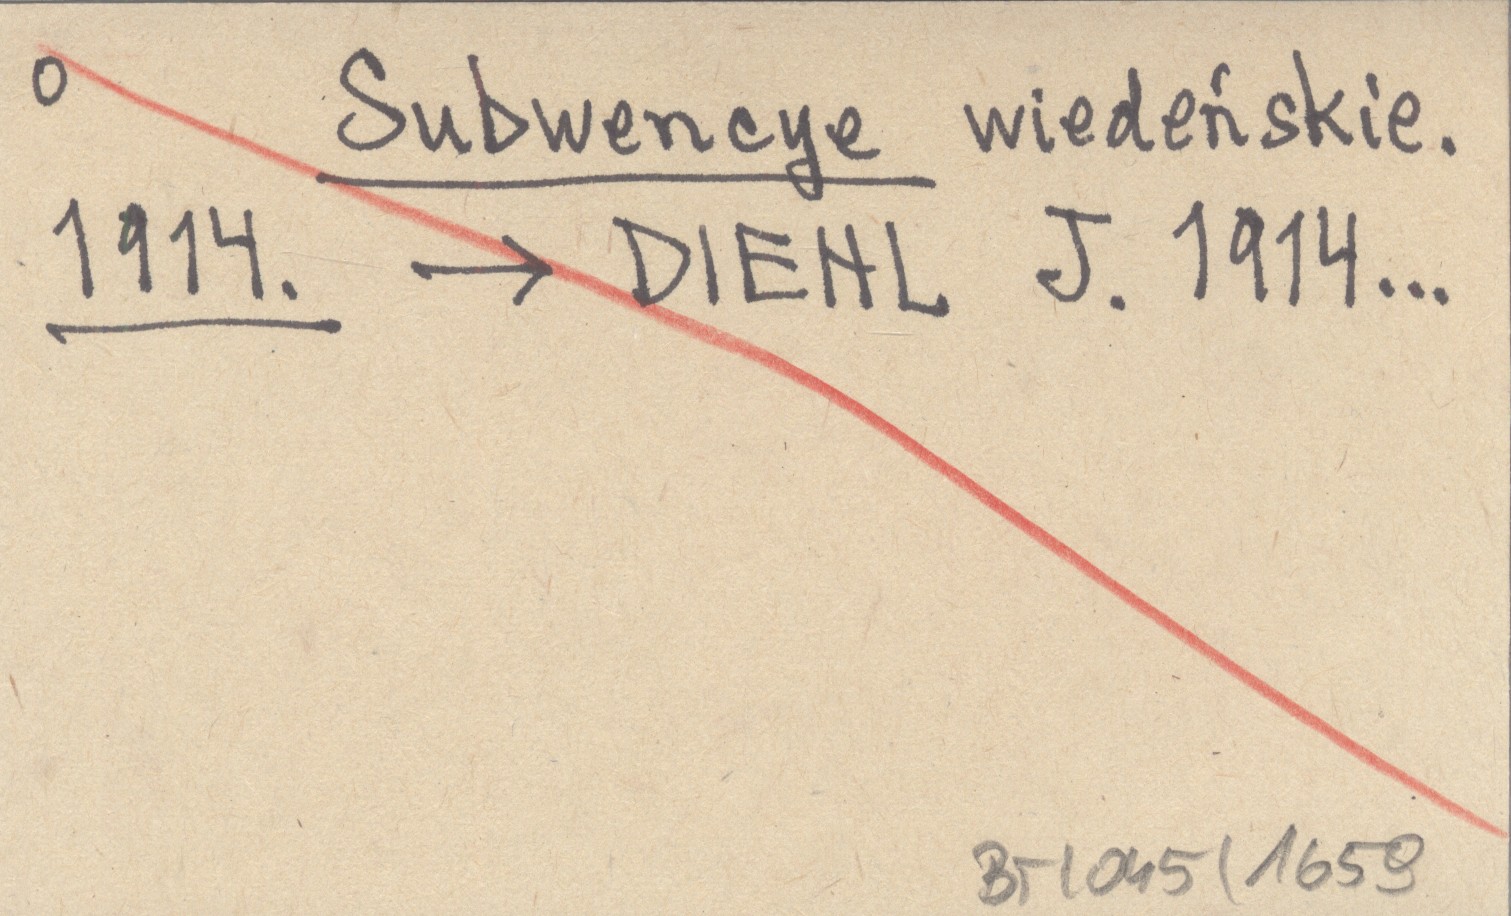 O Subwencye wiedeńskie.
1914. → DIEHL J. 1914...
BT/045/1659